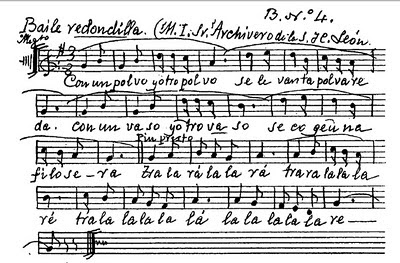 B. N.º 4.
Baile redondilla. (M. I. Sr. Archivero de la S. I. C. León.
Con un polvo y otro polvo se le vanta polvare
da. con un va so y otro va so se co ge ŭ na
Pin Prieto
filo se - ra tra la rá la la rá tra ra la la la
ré tra la la la la lá la la la la la re